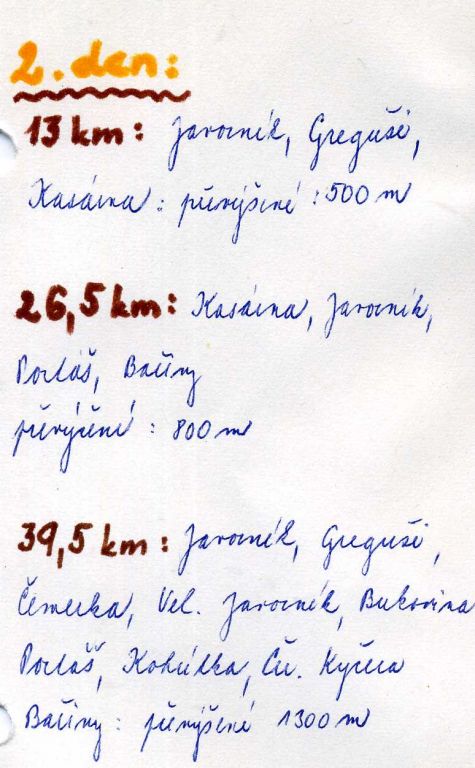 2. den:
13 km: Javorník, Greguši,
Kasárna: převýšení: 500 m
26,5 km: Kasárna, Javorník,
Portáš, Bačiny
převýšení: 800 m
39,5 km: Javorník, Greguši,
Čemerka, Vel. Javorník, Bukovina
Portáš, Kohútka, Ču. Kyčera
Bařiny: převýšení 1300 m